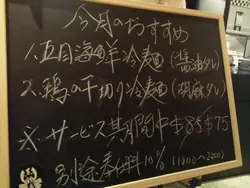 今月のおすすめ
1.五目海鮮冷麺(醤油タレ)
2.鶏の千切り冷麺(胡麻タレ)
※サービス期間中$85$75
別途奉仕料10%(1800〜2200)